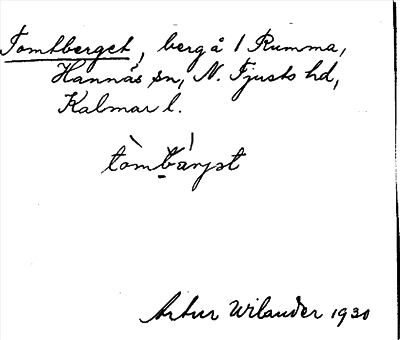 Tomtberget, berg å 1 Rumma,
Hannäs sn, N. Tjusts hd,
Kalmar l.
tòmbärjət
Artur Wilander 1930